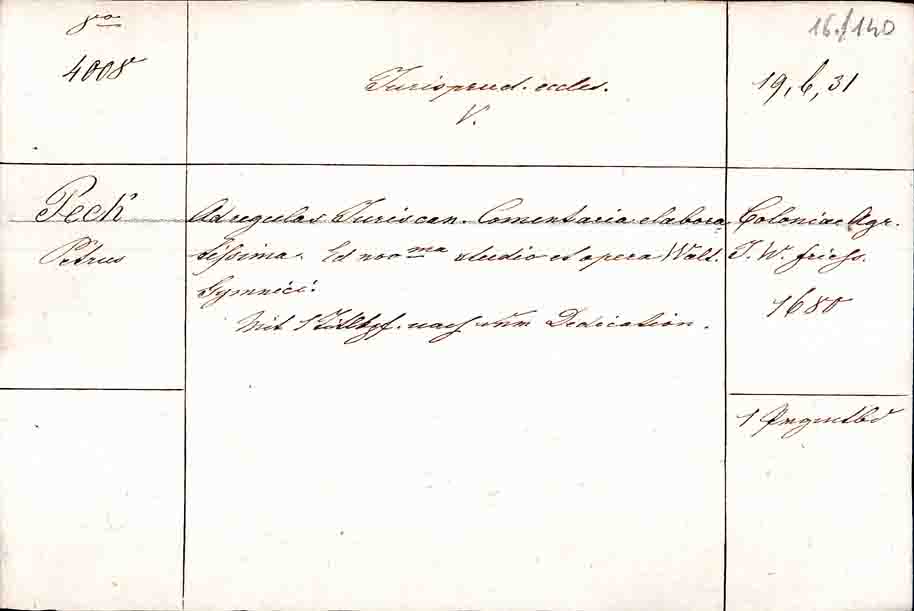 8vo
16./140
4008
Jurisprud. eccles.
V.
19, b, 31
Peck
Petrus
Ad regulas Juris can. Comentaria elabora
tissima. Ed noo ma studio et opera Walt.
Gymnici.
Mit 1 Titlkpf. nach dem Dedication.
Coloniae Agr.
J. W. Friess.
1680
1 Prgmtbd